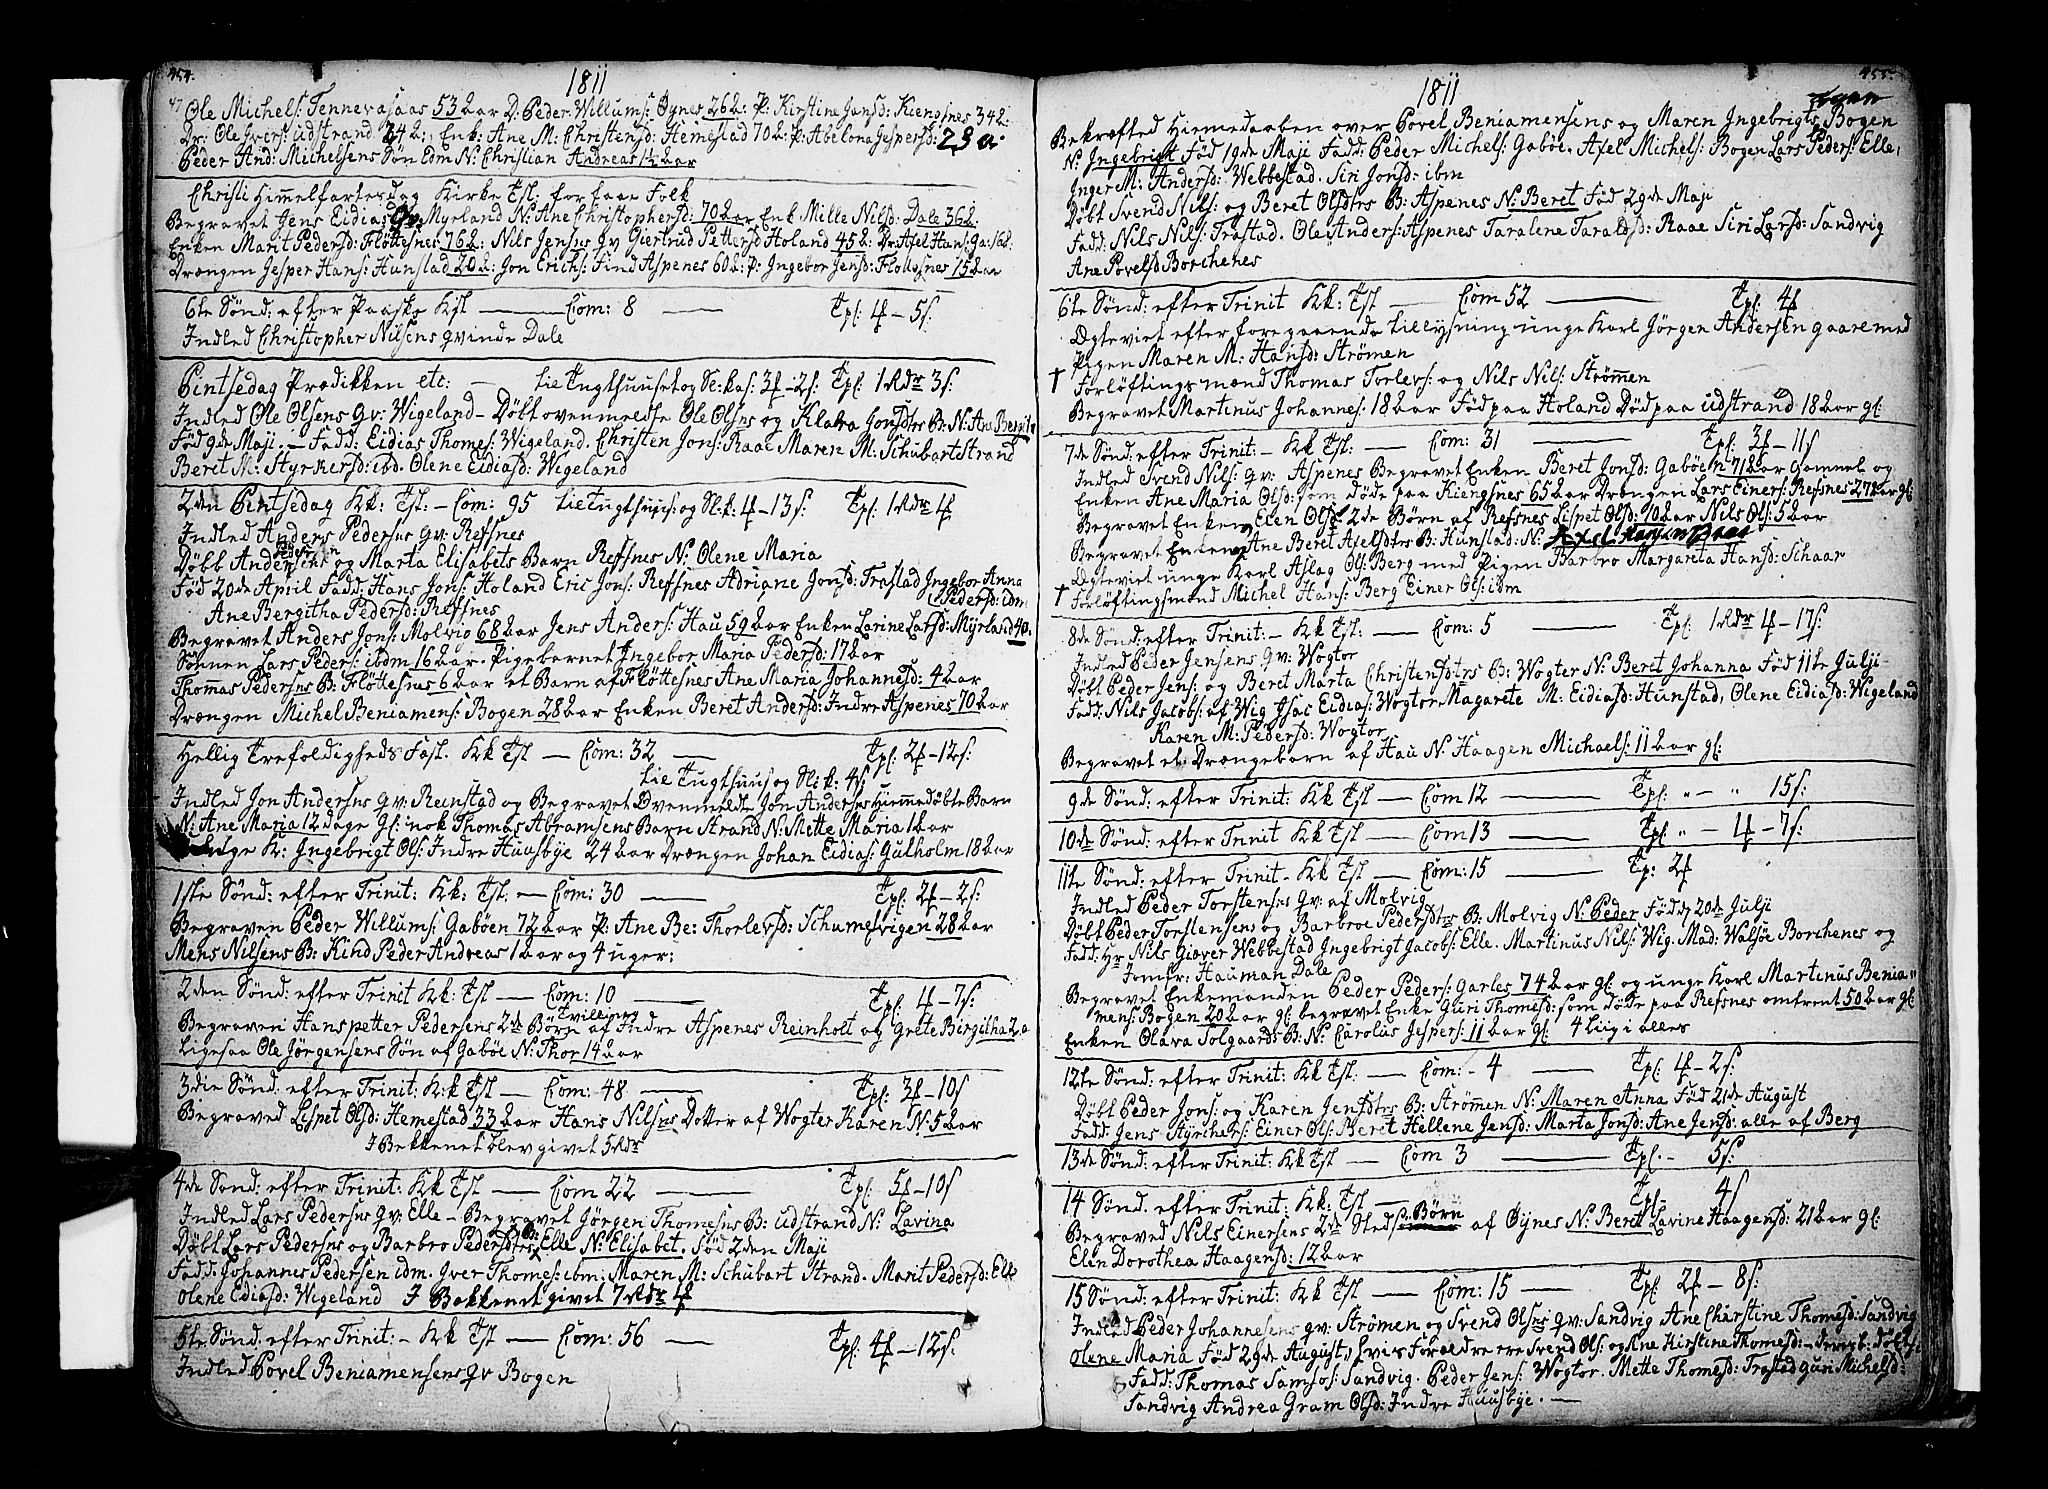 454.
1811
47 Ole Michels: Tennevasaas 53 Aar D: Peder Willums: Øynes 26 A: P: Kirstine Jansd: Kiengsnes 34 A:
Dr: Ole Ivers: udstrand 24 A: Enk: Ane M: Christensd: Hemestad 70 A: P: Abelona Jespersd: 23 a.
Peder And: Michelsens Søn Edm N: Christian Andreas 1½ Aar
Christi Himmelfartesdag Kirke Tst: for faae Folk
Begravet Jens Eidias Qv: Myrland N: Ane Christophersd: 70 Aar Enk Mille Nilsd: Dale 36 A:
Enken Marit Pedersd: Fløttesnes 76 A: Nils Jensns Qv Giertrud Pettersd Holand 45 A: Dr: Axel Hans: Ga: 16 A:
Drængen Jesper Hans: Hunstad 20 A: Jon Erichs: Find Aspenes 60 A: P: Ingebor Jensd: Flottesnes 15 Aar
6te Sønd: efter Paaske Kst — Com: 8 — Tpl: 4 – 5s:
Indled Christopher Nilsens qvinde Dale
Pintsedag Prædikken etc: — tie Tugthuuset og Sl: kas: 3 – 2s: Tpl: 1 Rdr 3s:
Indled Ole Olsens Qv: Wigeland – Døbt ovenmeldte Ole Olsns og Klara Jonsdtrs B: N: Ane Bergite
Fød 9de Maji. – Fadd: Eidias Thomes: Wigeland. Christen Jons: Raae Maren M: Schubart Strand
Beret M: Styrkersd: ibd. Olene Eidiasd: Wigeland
2den Pintsedag Kk: Tst: – Com: 95 tie Tugthuus: og Sl: k: 4 – 13s: Tpl: 1 Rdr 4
Indled Anders Pedersns Qv: Refsnes
Døbt Anders Pedersen og Marta Elisabets Barn Refsnes N: Olene Maria
Fød 20de April Fadd: Hans Jons: Holand Eric Jons: Refsnes Adriane Jonsd: Trastad Ingebor Anna
Pedersd: idm:
Ane Bergitha Pedersd: Refsnes
Begravet Anders Jons: Molvig 68 Aar Jens Anders: Hau 59 Aar Enken Larine Larsd: Myrland 40.
Sønnen Lars Peders: ibdm 16 Aar. Pigebarnet Ingebor Maria Pedersd: 17 Aar
Thommas Pedersns B: Fløttesnes 6 Aar et Barn af Fløttesnes Ane Maria Johannesd: 4 Aar
Drængen Michel Beniamens: Bogen 28 Aar Enken Beret Andersd: Indre Aspenes 70 Aar
Hellig Trefoldigheds Fest. Kk Tst — Com: 32 — Tpl: 2 – 12s:
tie Tugthuus og Sl: k: 4s:
Indled Jon Andersns Qv: Reinstad og Begravet Ovenmeldte Jon Andersns Hiemmedøbte Barn
N: Ane Maria 12 dage gl: nok Thomas Abramsens Barn Strand N: Mette Maria 1 Aar
K: Ingebrigt Ols: Indre Huusbye 24 Aar Drængen Johan Eidias: Gulholm 18 Aar
1ste Sønd: efter Trinit: Kk: Tst. – Com: 30 — Tpl: 2 – 2s:
Begraven Peder Willums: Gabøen 72 Aar P: Ane Be: Thorlevsd: Schumesvigen 28 Aar
Mens Nilsens B: Kind Peder Andreas 1 Aar og 4 uger:
2den Sønd: efter Trinit Kk: Tst — Com: 10 — Tpl: 4 – 7s:
Tvillinger
Begraven Hans petter Pedersens 2de Børn af Indre Aspenes Reinholt og Grete Birgitha 2 a
Ligesaa Ole Jørgensens Søn af Gabøe N: Thor 14 Aar
3die Sønd: efter Trinit: K:k Tst – Com: 48 — Tpl: 3 – 10s
Begraved Lispet Olsd: Hemestad 33 Aar Hans Nilsns Dotter af Wogter Karen N: 5 Aar
I Bekkenet blev givet 5 Rdr
4de Sønd: efter Trinit: Kk Tst — Com 22 — Tpl: 5 – 10s
Indled Lars Pedersns Qv: Elle – Begravet Jörgen Thomesns B: udstrand N: Lavina
Døbt Lars Pedersns og Barbro Pedersdtrs B: Elle N: Elisabet. Fød 2den Maji
Fadd: Johannes Pedersen idm. Iver Thomes: ibm: Maren M: Schubart Strand. Marit Pedersd: Elle
Olene Ediasd: Wigeland I Bekkenet givet 7 Rdr 4
5te Sønd: efter Trinit: – Kk Tst — Com: 56 — Tpl: 4 – 12s:
Indled Povel Beniamensens qv Bogen
455.
1811
Bekræfted Hiemmedaaben over Povel Beniamensens og Maren Ingebrigts Bogen
N: Ingebrigt Fød 19de Maji Fadd: Peder Michels: Gabøe. Axel Michels: Bogen Lars Peders: Elle,
Inger M: Andersd: Webbestad. Siri Jonsd: ibm
Døbt Svend Nils: og Beret Olsdtrs B: Aspenes N: Beret Fød 29de Maji
Fadd: Nils Nils: Trastad. Ole Anders: Aspenes Taralene Taraldsd: Raae Siri Larsd: Sandvig
Ane Povelsd Borchenes
6te Sønd: efter Trinit Kk: Tst — Com 52 — Tpl: 4
Ægteviet efter foregaaende tillysning unge Karl Jörgen Andersen gaare med
Pigen Maren M: Hansd: Strömen
† Forløftingsmænd Thomas Torlevs: og Nils Nils: Strömmen
Begravet Martinus Johannes: 18 Aar Fød paa Holand Död paa udstrand 18 Aar gl:
7de Sønd: efter Trinit: – Kk Tst: — Com: 31 — Tpl: 3 – 11s
Indled Svend Nils: Qv: Aspenes Begravet Enken Beret Jonsd: Gabøen 71 Aar Gammel og
Enken Ane Maria Olsd: som döde paa Kiengsnes 65 Aar Drængen Lars Einers: Refsnes 27 Aar gl:
Begravet Enken Elen Olsd: 2de Börn af Refsnes Lispet Olsd: 10 Aar Nils Ols: 5 Aar
Begravet Enken Ane Beret Axelsdtrs B: Hunstad: N: Axel
Ægteviet unge Karl Aslag Ols: Berg med Pigen Barbro Margareta Hansd: Schaar
† Forløftingsmænd Michel Hans: Berg Einer Ols: ibm
8de Sønd: efter Trinit: – Kk Tst: — Com: 5 — Tpl: 1 Rdr 4 – 17s:
Indled Peder Jensens Qv: Wogtor
Døbt Peder Jens: og Beret Marta Christensdtrs B: Wogter N: Beret Johanna Fød 11te Julji
Fadd: Nils Jacobs: af Wig Isac Eidias: Wogtor. Magarete M: Eidiasd: Hunstad, Olene Eidiasd: Wigeland
Karen M: Pedersd: Wogtor
Begravet et Drængebarn af Hau N: Haagen Michaels: 11 Aar gl:
9de Sønd: efter Trinit: Kk Tst — Com 12 — Tpl: „ – „ 15s:
10de Sønd: efter Trinit Kk Tst — Com 13 — Tpl: „ – 4 – 7s:
11te Sønd: efter Trinit – Kk Tst — Com: 15 — Tp: 2
Indled Peder Torstensns Qv: af Molvig
Døbt Peder Torstensens og Barbroe Pedersdtrs B: Molvig N: Peder Född 20de Julji
Fadd: Hr Nils Giæver Webbestad Ingebrigt Jacobs: Elle. Martinus Nils: Wig. Mad: Walsöe Borchenes og
Jomfr: Hauman Dale
Begravet Enkemanden Peder Peders: Garles 74 Aar gl: og unge Karl Martinus Benia-
mens: Bogen 20 Aar gl: begravet Enke Guri Thomesd: som döde paa Refsnes omtrent 50 Aar gl:
Enken Olava Solgaards B: N: Carolus Jespers: 11 Aar gl: 4 Liig i alles
12te Sønd: efter Trinit: Kk Tst: — Com: – 4 — Tpl: 4 – 2s:
Døbt Peder Jons: og Karen Jensdtrs B: Strömmen N: Maren Anna Fød 21de August
Fadd: Jens Styrkers: Einer Ols: Beret Hellene Jensd: Marta Jonsd: Ane Jensd: alle af Berg
13de Sønd: efter Trinit Kk Tst — Com 3 — Tpl: – 5s:
14 Sønd: efter Trinit: Kk: Tst — Tpl – 4s
Begraved Nils Einersens 2de Sted: Børn af Øynes N: Beret Lavine Haagensd: 21 Aar gl:
Elen Dorothea Haagensd: 12 Aar
15 Sønd: efter Trinit: Kk Tst — Com: 15 — Tpl: 2 – 8s:
Indled Peder Johannesens qv: Strömen og Svend Olsns qv: Sandvig Ane Charstine Thomesd: Sandvig
Olene Maria Fød 29de August, hvis Forældre ere Svend Ols: og Ane Kirstine Thomesd: – døbt:
Fadd: Thomas Samsos: Sandvig. Peder Jens: Wogtor. Mette Thomesd: Trastad Gun Michelsd:
Sandvig Andrea Gram Olsd: Indre Huusbye. —